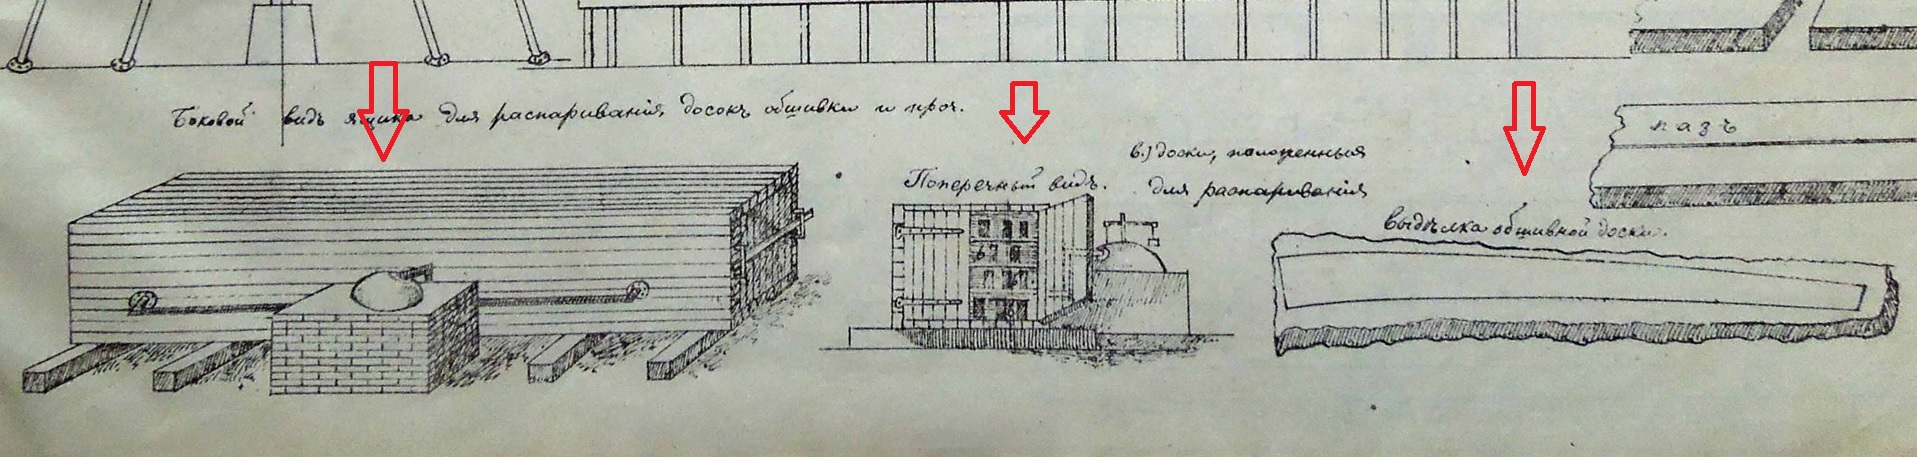 Боковой видъ ящика для распариванія досокъ обшивки и проч.
Поперечный видъ.
в.) доски, положенныя
для распариванія
выдѣлка обшивной доски.
пазъ